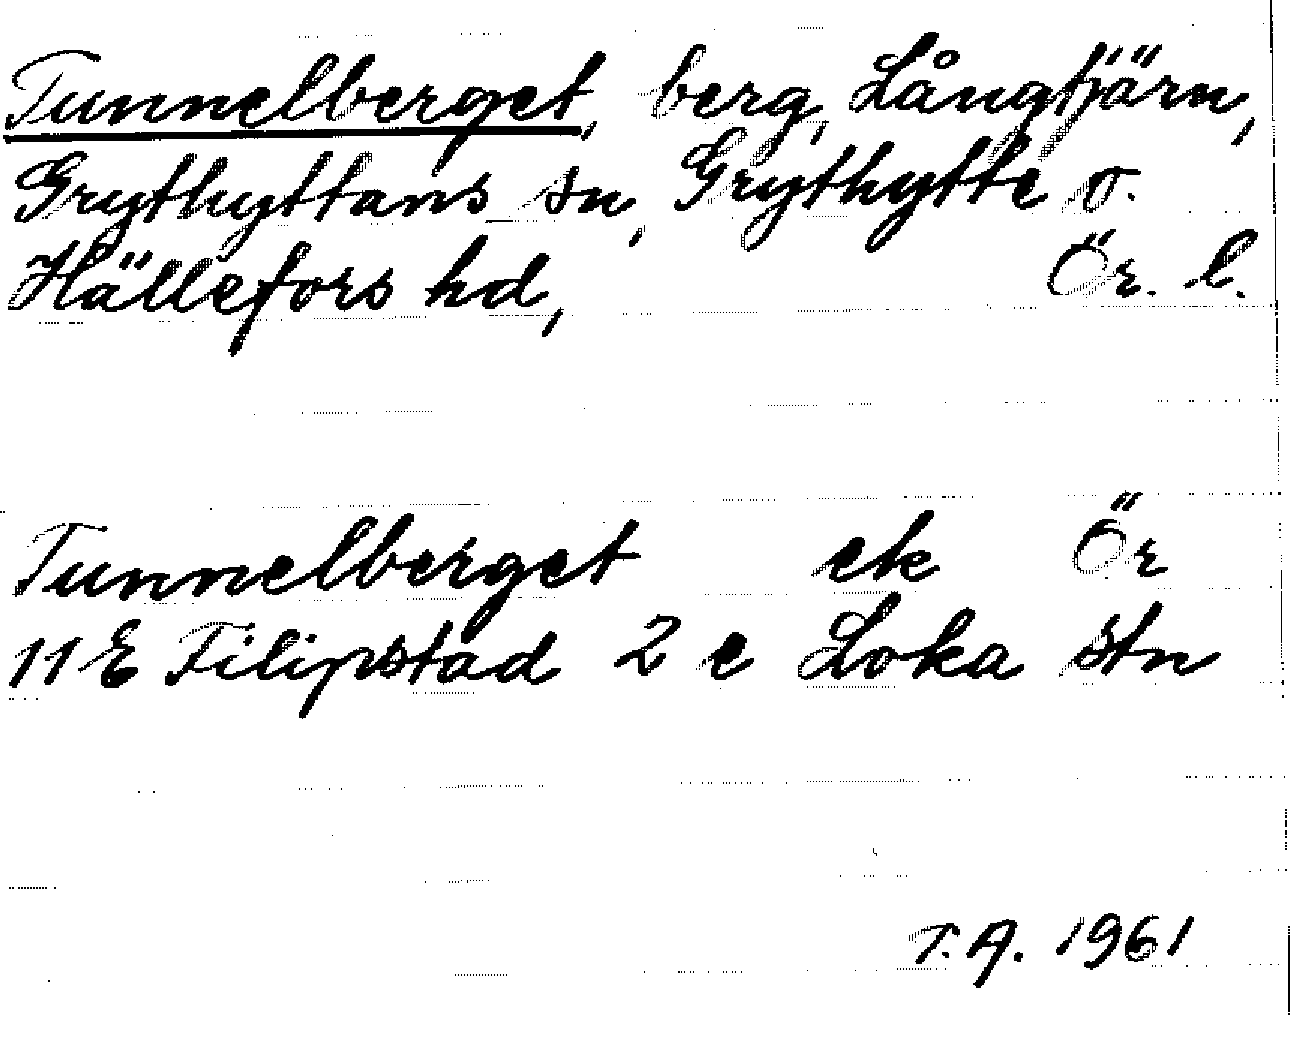 Tunnelberget, berg, Långtjärn,
Grythyttans sn, Grythytte o.
Hällefors hd, Ör. l.
Tunnelberget ek Ör
11 E Filipstad 2 e Loka stn
T.A. 1961